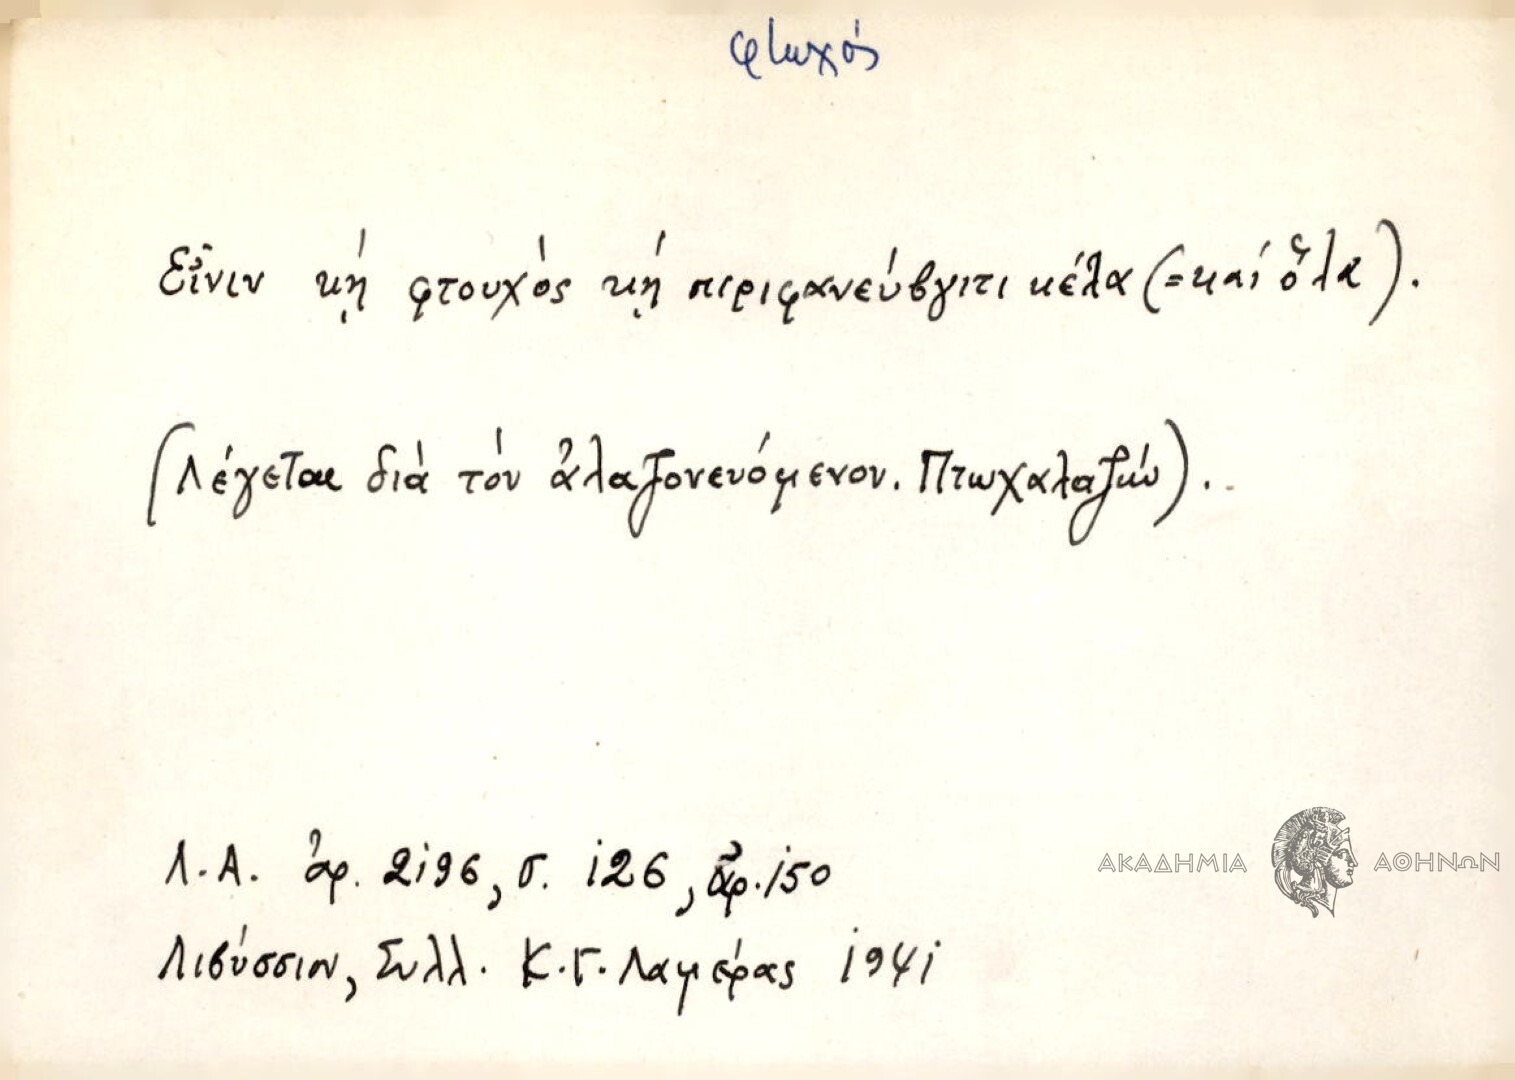 φτωχός
Εἶνιν κῄ φτουχός κῄ πιριφανεύβγιτι κέλα (=καί ὅλα).
(Λέγεται διά τόν ἀλαζονευόμενον. Πτωχαλαζών).
Λ.Α. ἀρ. 2196, σ. 126, ἀρ. 150
Λιβύσσιον, Συλλ. Κ.Γ. Λαμέρας 1941
ΑΚΑΔΗΜΙΑ ΑΘΗΝΩΝ